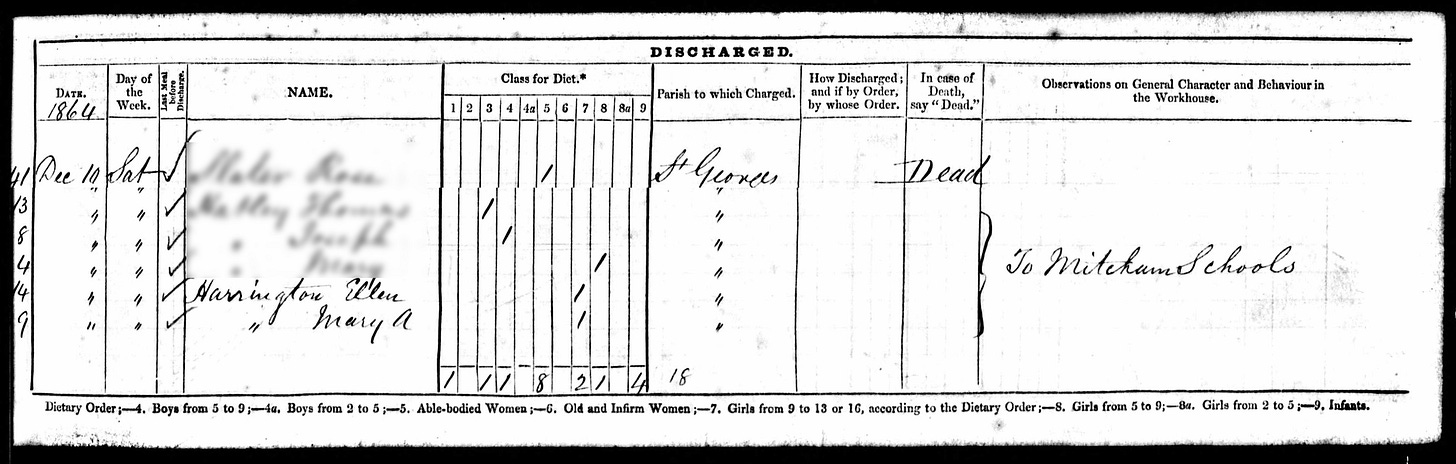 DISCHARGED.
DATE. 1864 Day of the Week. Last Meal before Discharge. NAME. Class for Diet.* Parish to which Charged. How Discharged; and if by Order, by whose Order. In case of Death, say "Dead." Observations on General Character and Behaviour in the Workhouse.
1 2 3 4 4a 5 6 7 8 8a 9
41 Dec 10 Sat ✓ 1 St Georges Dead
13 " " ✓ 1 "
8 " " ✓ 1 "
4 " " ✓ 1 " To Mitcham Schools
14 " " ✓ Harrington Ellen 1 "
9 " " ✓ " Mary A 1 "
1 1 1 8 2 1 4 18
Dietary Order;—4. Boys from 5 to 9;—4a. Boys from 2 to 5;—5. Able-bodied Women;—6. Old and Infirm Women;—7. Girls from 9 to 13 or 16, according to the Dietary Order;—8. Girls from 5 to 9;—8a. Girls from 2 to 5;—9. Infants.